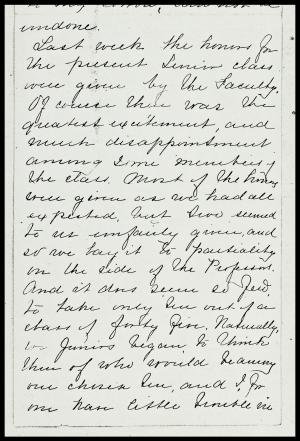 undone.
Last week the honors for
the present Senior class
were given by the Faculty.
Of course there was the
greatest excitement, and
much disappointment
among some members of
the class. Most of the honors
were given as we had all
expected, but two seemed
to us unfairly given, and
so we lay it to partiality
on the side of the Professors.
And it does seem so few
to take only ten out of a
class of forty five. Naturally,
we Juniors began to think
then of who would be among
our chosen ten, and I, for
one have little trouble in